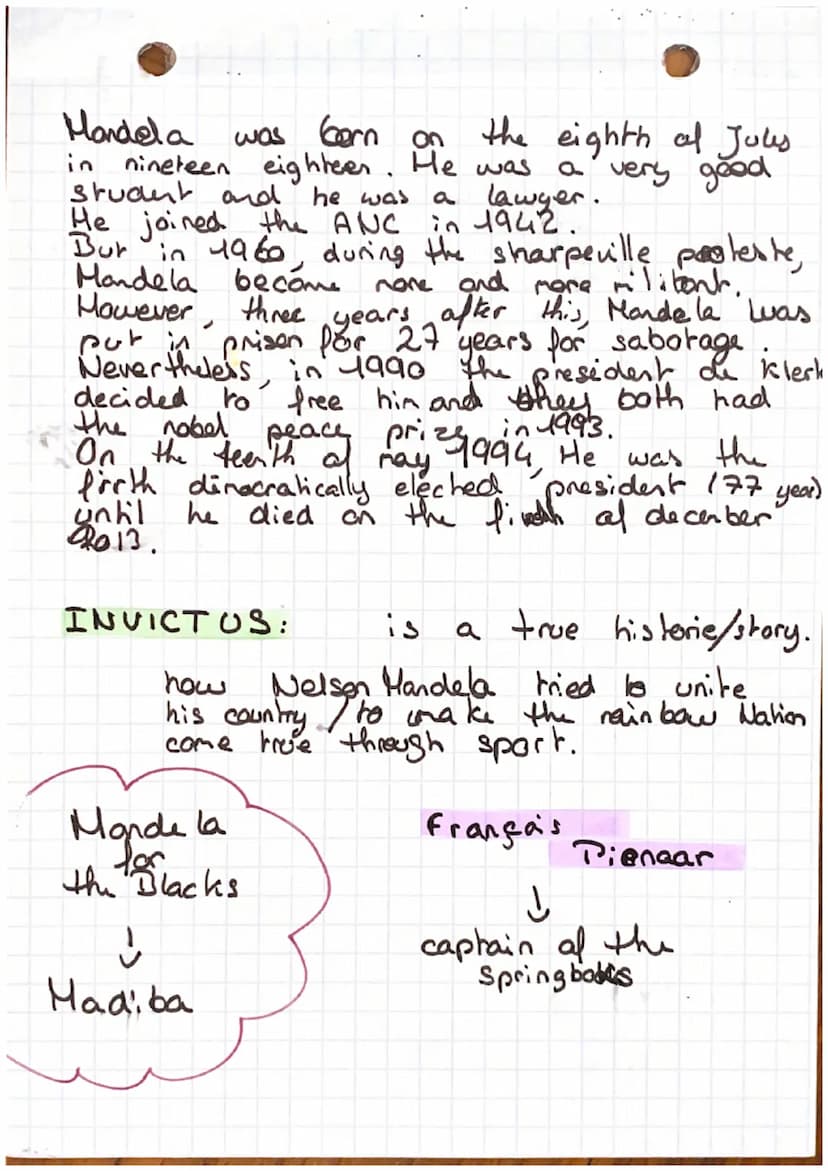 Mandela was born on the eighth of July
in nineteen eighteen. He was a very good
student and he was a lawyer.
He joined the ANC in 1942.
But in 1960, during the sharpeville
Mandela become more and more militant.
However, three years after this, Mandela was
put in prison for 27 years for sabotage.
Nevertheless, in 1990 the president de klerk
decided to free him and they both had
the nobel peace prize in 1993.
On the tenth of may 1994, He was the
dimocratically elected president (77 year)
until he died on the of december
2013.
INVICTUS: is a true historie/story.
how Nelson Mandela tried to unite
his country / to make the rainbow Nation
come true through sport.
Mandela
for
the Blacks
↓
Madiba
Français
Pienaar
↓
captain of the
Springboks